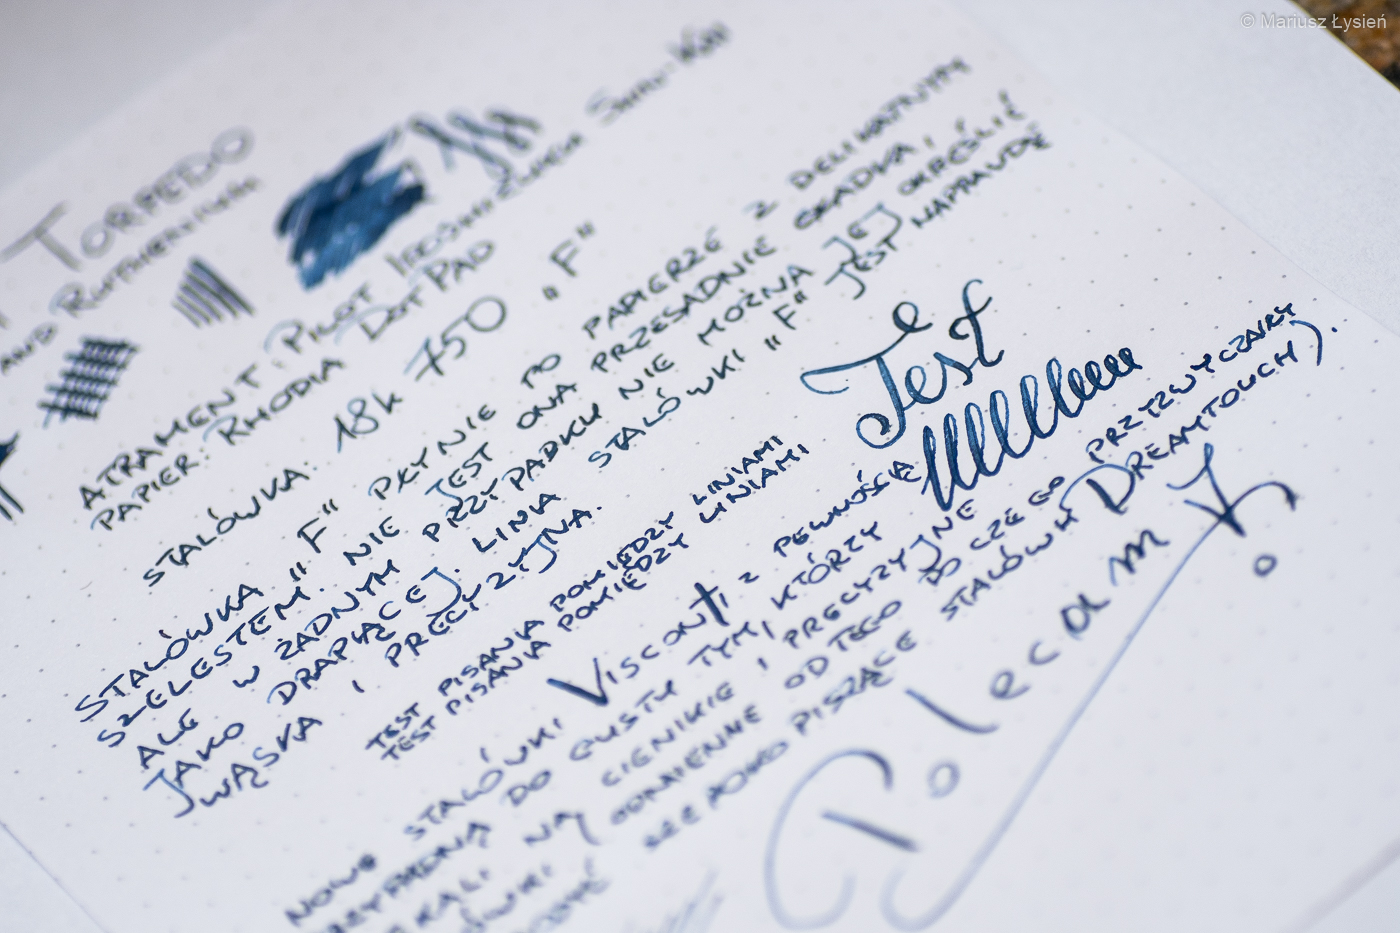 © Mariusz Łysień
TORPEDO
AND RUTHERFORD
ATRAMENT: PILOT IROSHIZUKU SHIN-KAI
PAPIER: RHODIA DOT PAD
STALÓWKA: 18k 750 "F"
STALÓWKA "F" PŁYNIE PO PAPIERZE Z DELIKATNYM
SZELESTEM. NIE JEST ONA PRZESADNIE GŁADKA,
ALE W ŻADNYM PRZYPADKU NIE MOŻNA JEJ OKREŚLIĆ
JAKO DRAPIĄCEJ. LINIA STALÓWKI "F" JEST NAPRAWDĘ
WĄSKA I PRECYZYJNA.
Test
TEST PISANIA POMIĘDZY LINIAMI
TEST PISANIA POMIĘDZY LINIAMI
NOWE STALÓWKI VISCONTI Z PEWNOŚCIĄ
PRZYPADNĄ DO GUSTU TYM, KTÓRZY
NA CIENKIE I PRECYZYJNE
ODMIENNE OD TEGO DO CZEGO PRZYZWYCZAIŁY
PISZĄCE STALÓWKI DREAMTOUCH).
Polecam